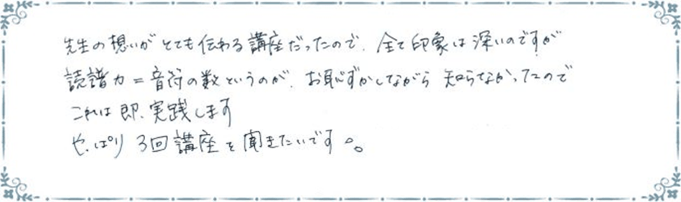 先生の想いがとても伝わる講座だったので、全て印象は深いのですが
読譜力=音符の数というのが、お恥ずかしながら知らなかったので
これは即、実践します
やっぱり3回講座を聞きたいです。